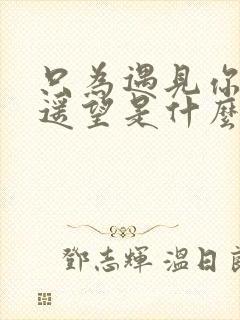 只為遇見你
遥望是什麼
鄧志輝 溫日良